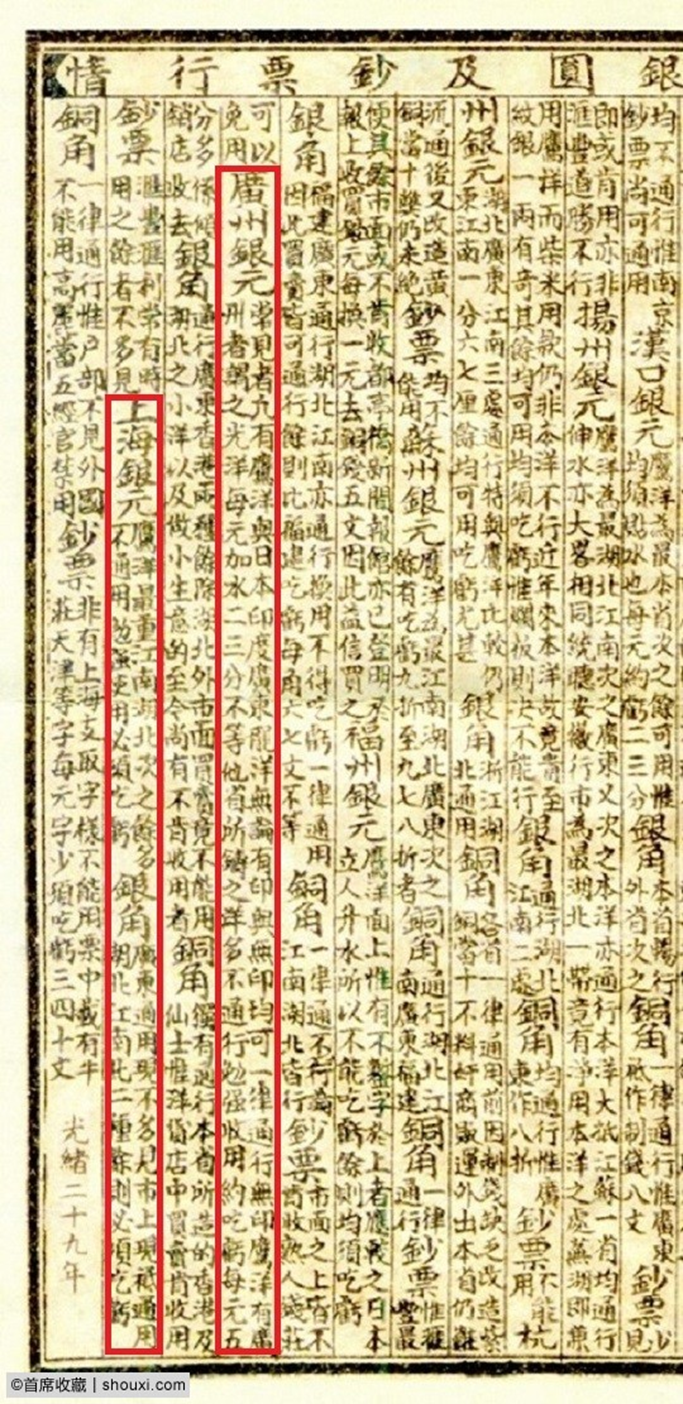 銀圓及鈔票行情
均不通行惟南京
鈔票尚可通用
漢口銀元
鷹洋為最本省次之餘可用惟
均須貼水也每元約虧二三分
銀角
本省暢行
外省次之
銅角
一律通行惟廣東
作制錢八文
鈔票
少
見
即或肯用亦非
滙豐道勝不行
揚州銀元
鷹洋為最湖北江南次之廣東又次之本洋亦通行本洋大抵江蘇一省均通行
伸水亦大畧相同統聽安徽行市為最湖北一帶竟有淨用本洋之處蕪湖即兼
用鷹洋而柴米用款仍非本洋不行近年來本洋故竟貴至
紋銀一兩有奇其餘均可用均須吃虧惟爛板則决不能行
銀角
通行湖北
江南二處
銅角
均通行惟廣
東作八折
鈔票
不能
用
杭州銀元
湖北廣東江南三處通行特與鷹洋比較仍
東江南一分六七厘餘均可用吃虧尤甚
銀角
浙江湖
北通用
銅角
各省一律通用前因制錢缺乏改造紫
銅當十不料奸商販運外出本省仍難
流通後又改造黃
銅當十雖仍未絕
鈔票
均不
能用
蘇州銀元
鷹洋為最江南湖北廣東次之
餘有吃虧九折至九七八折者
銅角
通行湖北江
南廣東福建
銅角
一律
通行
鈔票
惟滙
豐最
便其餘市面或不肯收都亭橋新聞報館亦已登明
報上收買銀元每換一元去銅錢五文因此益信買之不
福州銀元
鷹洋面上惟有不鏨字於上者應之日本
立人升水所以不能吃虧餘則均須吃虧
銀角
福建廣東通行湖北江南亦通行換用不得吃虧一律通用
因此買賣皆可通行餘則比福建吃虧每角六七文不等
銅角
一律通
江南湖北皆行
鈔票
市面之上皆不
肯收熟人錢莊
可以
免用
廣州銀元
常見者九有鷹洋與日本印度廣東龍洋無論有印與無印均可一律通行無印鷹洋有廣
州者謂之光洋每元加水二三分不等他省所鑄之洋多不通行勉强收用約吃虧每元五
分多係傾
銷店收去
銀角
通行廣東香港兩種餘除湖北外市面買賣竟不能用
湖北之小洋以及做小生意的至今尚有不肯收用者
銅角
獨有通行本省所造的香港及
仙士惟洋貨店中買賣肯收用
鈔票
滙豐滙利常有時
用之餘者不多見
上海銀元
鷹洋最重江南湖北次之餘多
不通用勉强使用必須吃虧
銀角
廣東通用現不多見市上現稱通用
湖北江南此二種餘則必須吃虧
銅角
一律通行惟戶部不見外國
不能用高麗當五經官禁用
鈔票
非有上海支取字樣不能用票中載有牛
莊天津等字每元字少須吃虧三四十文
光緒二十九年
©首席收藏 | shouxi.com